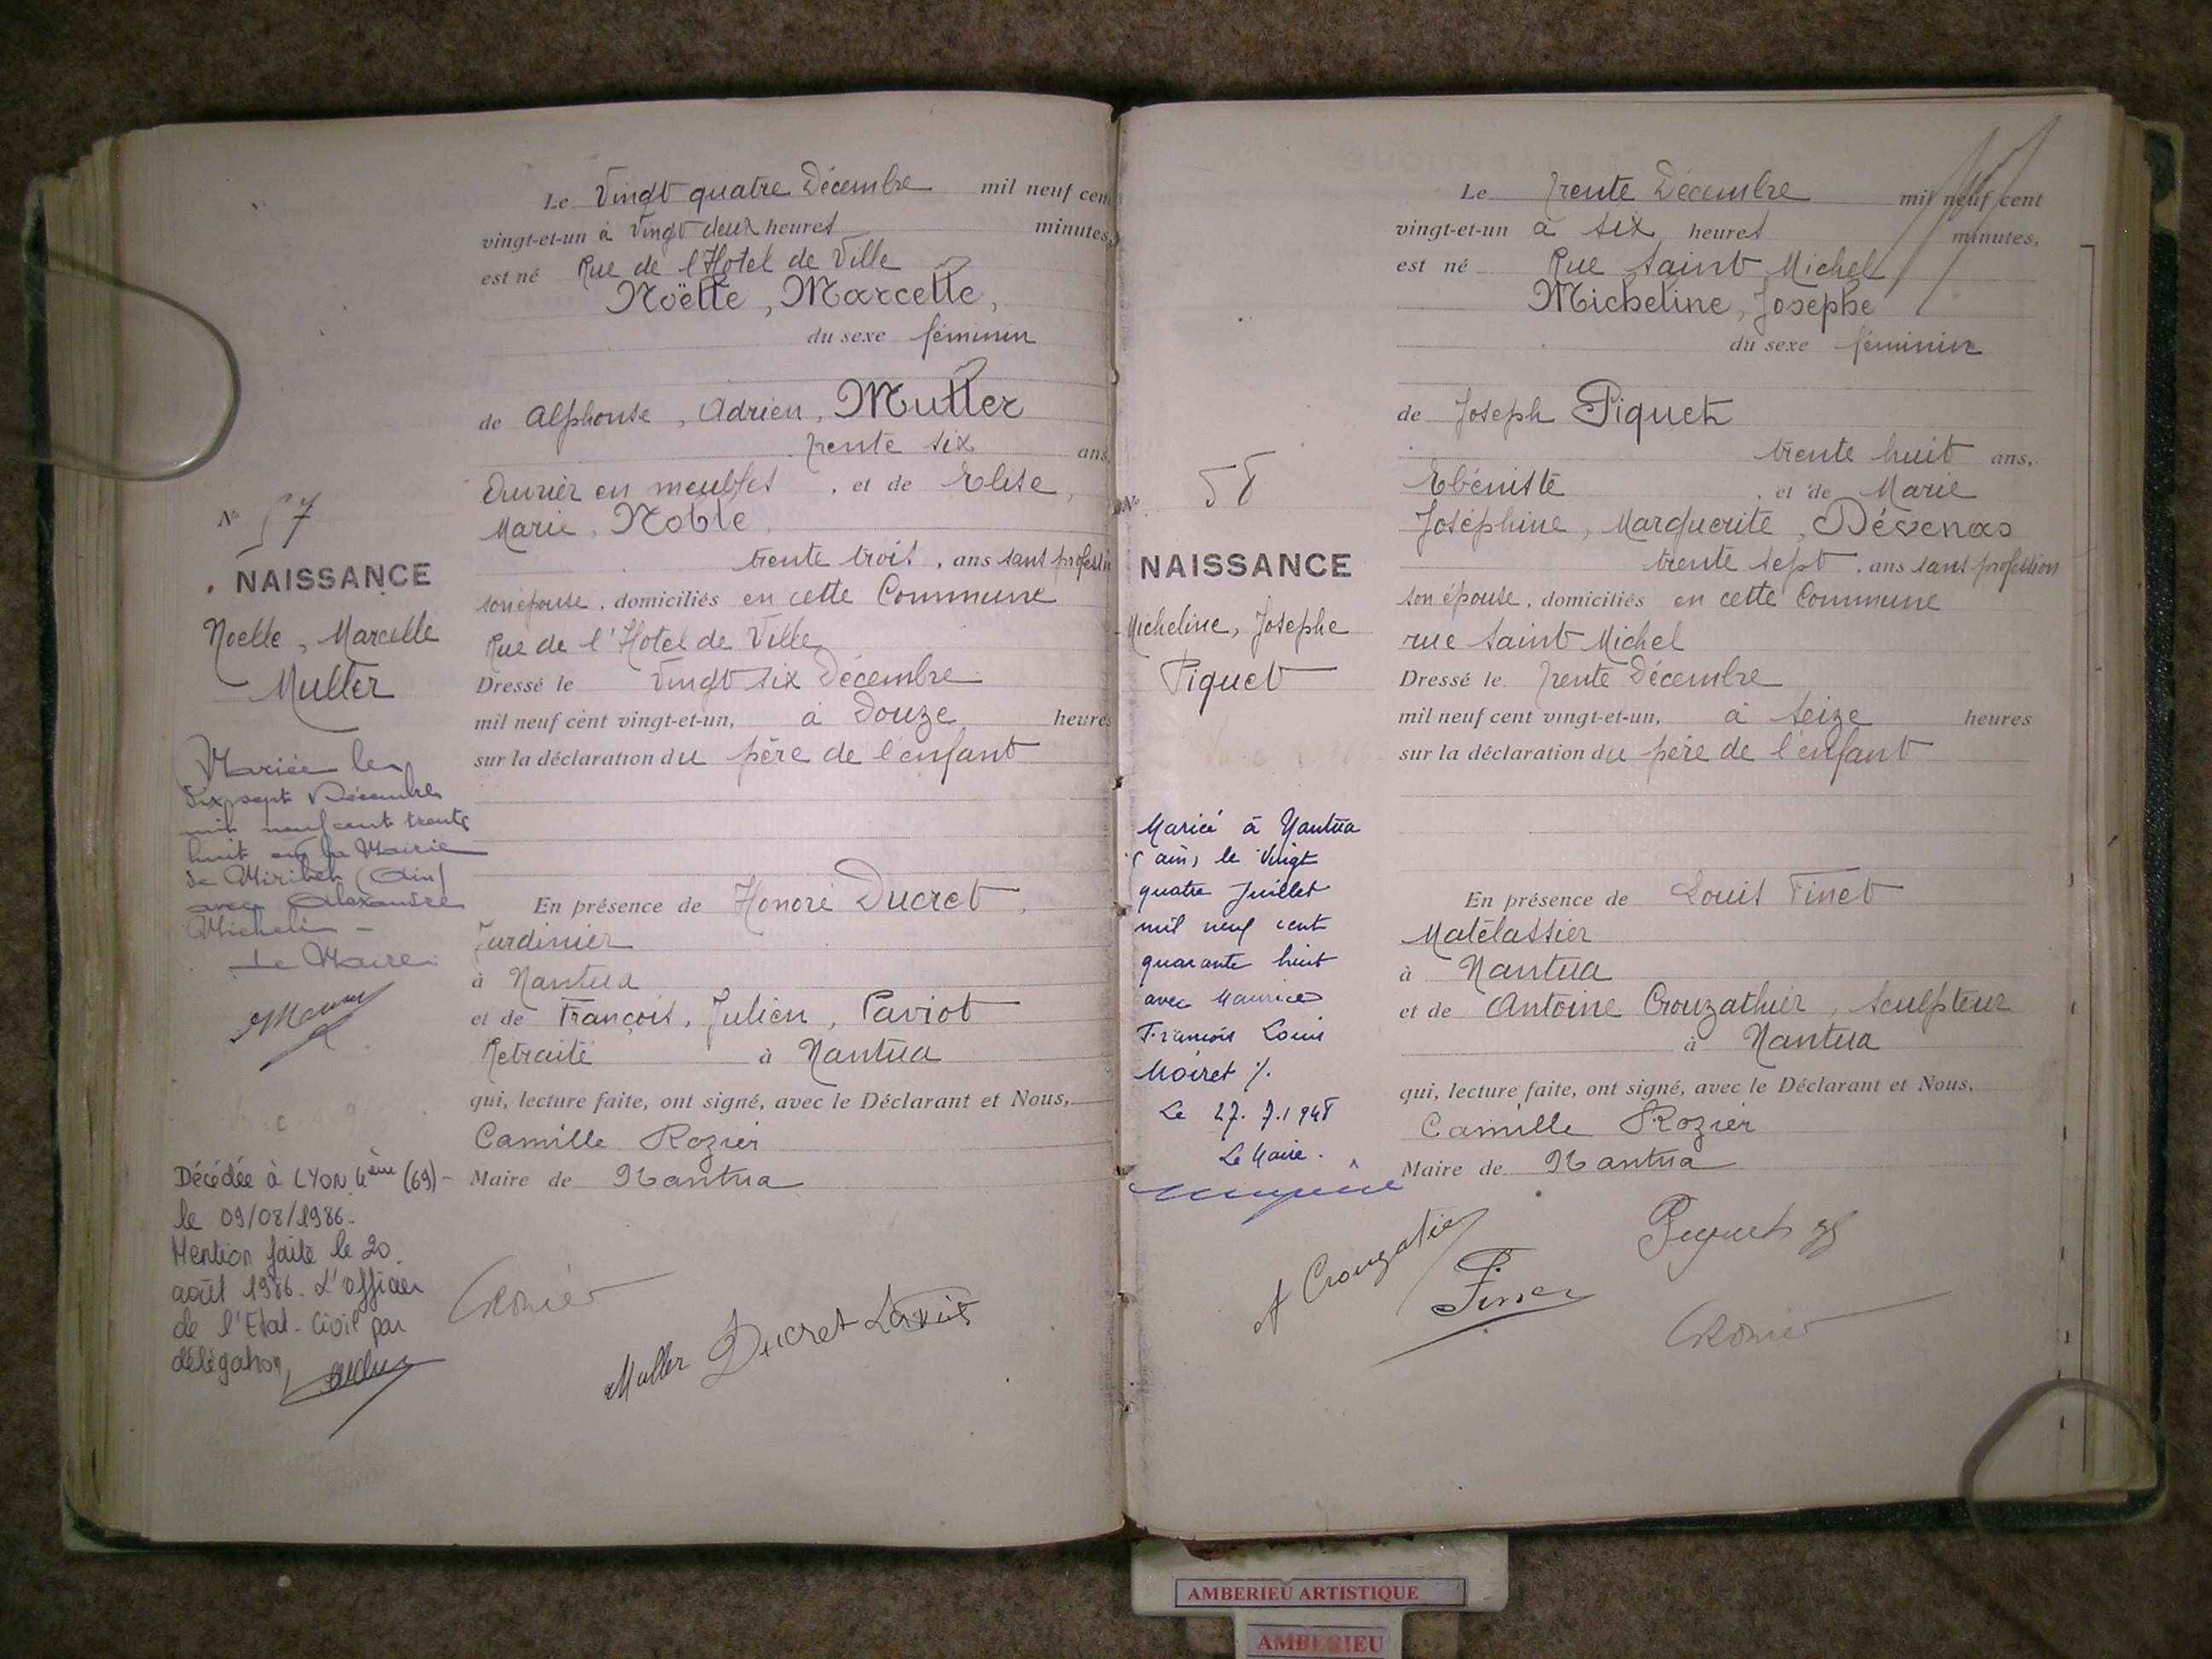 Le Vingt quatre Décembre mil neuf cent
vingt-et-un à Vingt deux heures minutes,
est né Rue de l'Hotel de Ville
Noëlle, Marcelle,
du sexe féminin
de Alphonse, Adrien, Muller
trente six ans,
Ouvrier en meubles, et de Elise,
Marie, Noble,
trente trois, ans sans profession
son épouse, domiciliés en cette Commune
Rue de l'Hotel de Ville
Dressé le Vingt six Décembre
mil neuf cent vingt-et-un, à Douze heures
sur la déclaration du père de l'enfant
En présence de Honoré Ducret,
Jardinier
à Nantua
et de François, Julien, Paviot
Retraité à Nantua
qui, lecture faite, ont signé, avec le Déclarant et Nous,
Camille Rozier
Maire de Nantua
Muller Ducret
N° 57
NAISSANCE
Noelle, Marcelle
Muller
Mariée le
dix sept Décembre
mil neuf cent trente
huit en la Mairie
de Miribel (Ain)
avec Alexandre
Michelin -
Le Maire
Décédée à LYON 4ème (69) -
le 09/08/1986.
Mention faite le 20
août 1986. L'officier
de l'Etat-Civil par
délégation,
Le trente Décembre mil neuf cent
vingt-et-un à six heures minutes,
est né Rue Saint Michel
Micheline, Josephe
du sexe féminin
de Joseph Piquet
trente huit ans,
Ebéniste, et de Marie
Joséphine, Marguerite,
trente sept, ans sans profession
son épouse, domiciliés en cette Commune
rue Saint Michel
Dressé le trente Décembre
mil neuf cent vingt-et-un, à seize heures
sur la déclaration du père de l'enfant
En présence de Louis Finet
Matelassier
à Nantua
et de Antoine Crouzathier, sculpteur
à Nantua
qui, lecture faite, ont signé, avec le Déclarant et Nous,
Camille Rozier
Maire de Nantua
A Crouzatier
Piquet
Finet
N° 58
NAISSANCE
Micheline, Josephe
Piquet
Marieé à Nantua
(ain) le Vingt
quatre Juillet
mil neuf cent
quarante huit
avec Maurice
François Louis
Moiret %.
Le 27.7.1948
Le Maire.
AMBERIEU ARTISTIQUE
AMBERIEU